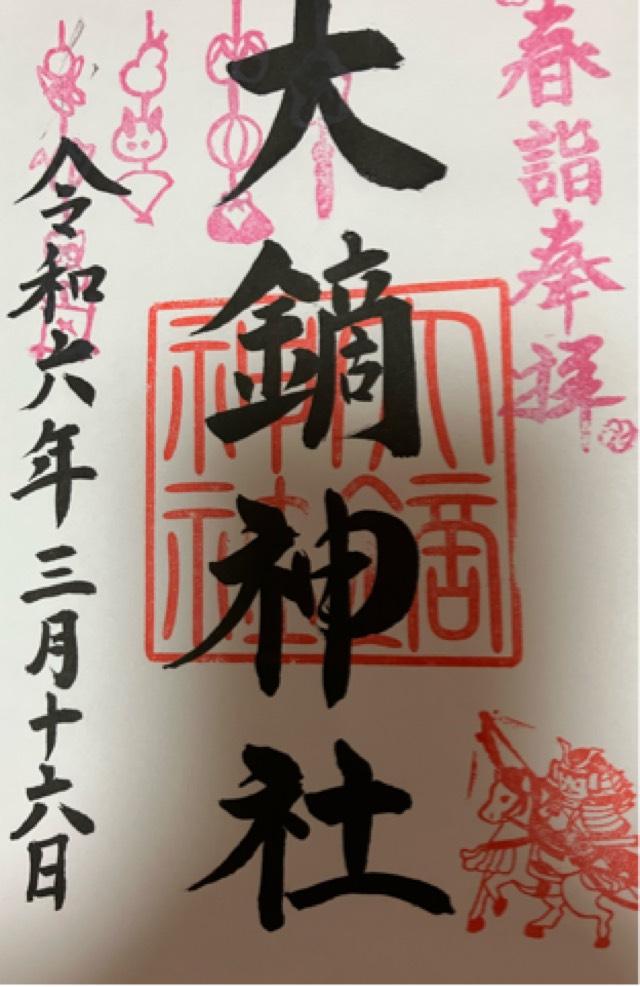 春詣奉拝
大鏑神社
令和六年三月十六日